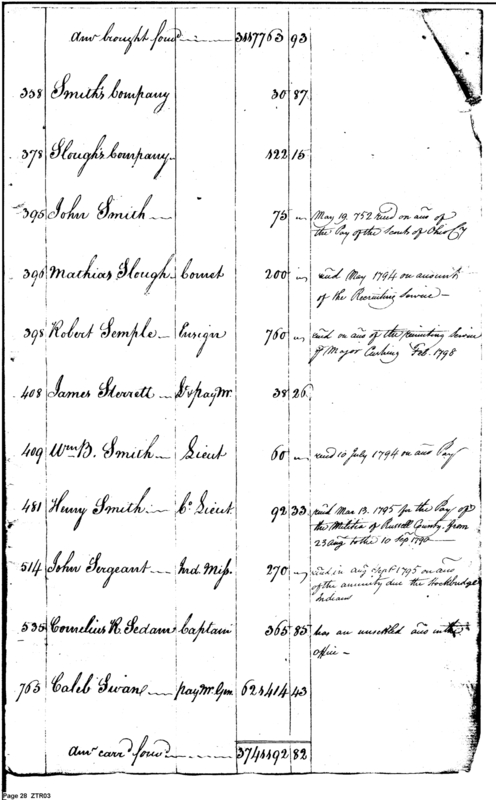 Amt brought forwd 3117763 93
338 Smith's Company 30 87
378 Slough's Company 422 15
395 John Smith 75 " May 19. 752 recd on acct of
the Pay of the Scouts of Ohio Cy
396 Mathias Slough Cornet 200 " recd May 1794 on account
of the Recruiting Service
398 Robert Semple Ensign 760 " recd on acct of the recruiting Service
of Major Cushing Feb. 1798
408 James Sterrett Lt & pay Mr 38 26
409 Wm B. Smith Lieut 60 " recd 10 July 1794 on acct Pay
481 Henry Smith Co Lieut 92 33 recd Mar 13. 1795 for the Pay of
the Militia of Russell County from
23 Aug to the 10 Sep 1790
514 John Sergeant Ind. Miss. 270 " recd in Aug Sept 1795 on acct
of the annuity due the Stockbridge
Indians
535 Cornelius R. Sedam Captain 365 85 has an unsettled acct in the
office
765 Caleb Swan pay Mr Genl 624414 43
Amt carrd forwd 3744492 82
Page 28 ZTR03